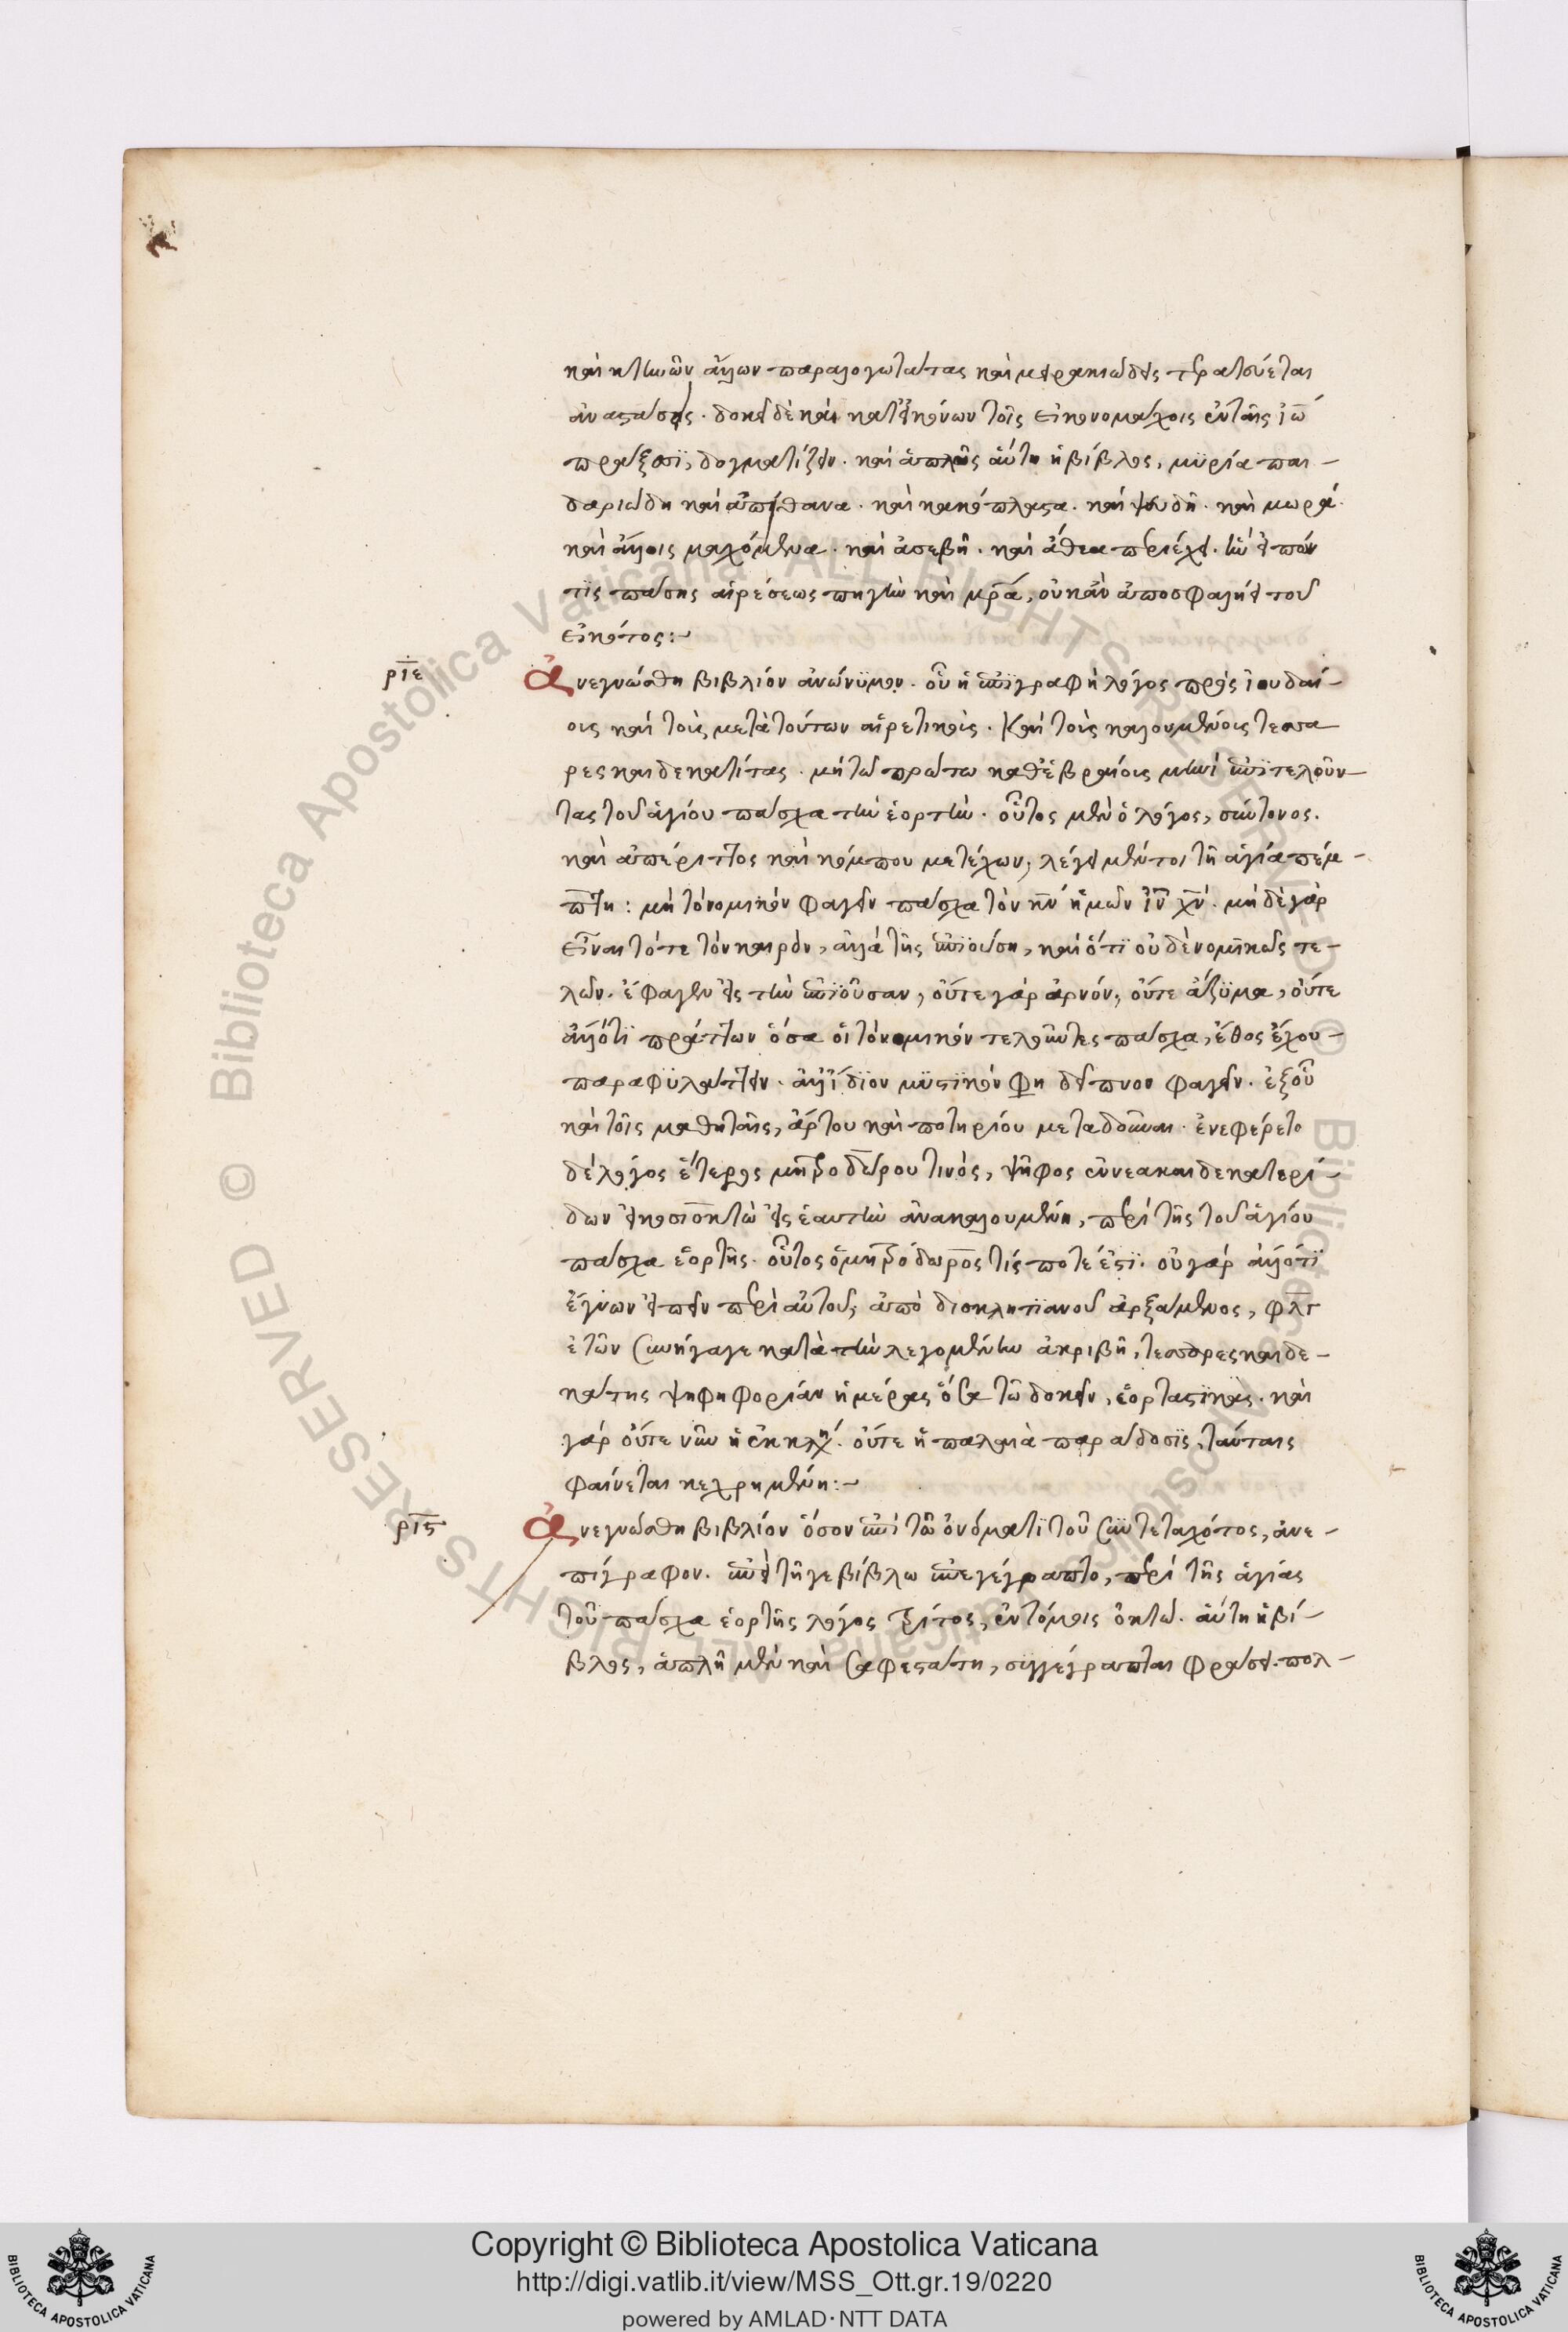 καὶ κτηνῶν ἄλλων παραλογωτάτας καὶ μειρακιώδεις τερατεύεται
ἀναστάσεις. δοκεῖ δὲ καὶ κατ' εἰκόνων τοῖς εἰκονομάχοις ἐν ταῖς ἰω
πράξεσϊ, δογματίζειν. καὶ ἁπλῶς αὕτη ἡ βίβλος, μϋρία παι-
δαριώδη καὶ ἀπίθανα. καὶ κακόπλαστα. καὶ ψευδῆ. καὶ μωρά.
καὶ ἀλλήλοις μαχόμενα. καὶ ἀσεβῆ. καὶ ἄθεα περιέχει. ἣν εἰπών
τϊς πάσης αἱρέσεως πηγὴν καὶ μρα, οὐκ ἂν ἀποσφαλείη τοῦ
εἰκότος:-
ριε
Ἀνεγνώσθη βιβλίον ἀνώνϋμον. οὗ ἡ ἐπϊγραφὴ λόγος πρὸς ἰουδαί-
οις καὶ τοῖς μετὰ τούτων αἱρετικοῖς. Καὶ τοῖς καλουμένοις τεσσα
ρεσκαιδεκατίτας. μὴ τῶ πρώτω καθ' ἑβραίοις μηνὶ ἐπϊτελοῦν-
τας τοῦ ἁγίου πάσχα τὴν ἑορτήν. οὗτος μὲν ὁ λόγος, σύντονος.
καὶ ἀπέριττος καὶ κόμπου μετέχων, λέγει μέντοι τῆ ἁγία πέμ-
πτη: μὴ τὸ νομικὸν φαγεῖν πάσχα τὸν κν ἡμῶν ἰν χν. μὴ δὲ γὰρ
εἶναι τότε τὸν καιρόν, ἀλλὰ τῆς ἐπϊούση, καὶ ὅτϊ οὐδὲ νομικῶς τε-
λῶν. ἔφαγεν εἰς τὴν ἐπϊοῦσαν, οὔτε γὰρ ἀρνόν, οὔτε ἄζϋμα, οὔτε
ἄλλό τϊ πράττων ὅσα οἱ τὸ νομικὸν τελοῦντες πάσχα, ἔθος ἔχου-
παραφϋλάττειν. ἀλλ' ἴδϊον μϋστϊκόν φη δεῖπνον φαγεῖν. ἐξ οὗ
καὶ τοῖς μαθηταῖς, ἄρτου καὶ ποτηρίου μεταδοῦναι. ἐνεφέρετο
δὲ λόγος ἕτερος μητροδώρου τινὸς, ψῆφος ἐννεακαιδεκατερί-
δων εἰκοσιοκτὼ εἰς ἑαυτὴν ἀνακαλουμένη, περὶ τῆς τοῦ ἁγίου
πάσχα ἑορτῆς. οὗτος ὁ μητρόδωρος τίς ποτέ ἐστϊ. οὐ γὰρ ἄλλό τϊ
ἔγνων εἰπεῖν περὶ αὐτοῦ, ἀπὸ διοκλητϊανοῦ ἀρξάμενος, φλγ
ἐτῶν συνήγαγε κατὰ τὴν λεγομένην ἀκριβῆ, τεσσαρεσκαιδε-
κάτης ψηφηφορίαν ἡμέρας ὅσα τῶ δοκεῖν, ἑορταστϊκὰς. καὶ
γὰρ οὔτε νῦν ἡ ἐκκλη. οὔτε ἡ παλαιὰ παράδοσϊς, ταύταις
φαίνεται κεχρημένη:-
ριϛ
Ἀνεγνώσθη βιβλίον ὅσον ἐπὶ τῶ ὀνόματϊ τοῦ συντεταχότος, ἀνε-
πίγραφον. ἐπεὶ τῆ γε βίβλω ἐπεγέγραπτο, περὶ τῆς ἁγίας
τοῦ πάσχα ἑορτῆς λόγος τρίτος, ἐν τόμοις ὀκτώ. αὕτη ἡ βί-
βλος, ἁπλῆ μὲν καὶ σαφεστάτη, συγγέγραπται φράσει. πολ-
Copyright © Biblioteca Apostolica Vaticana
http://digi.vatlib.it/view/MSS_Ott.gr.19/0220
powered by AMLAD·NTT DATA